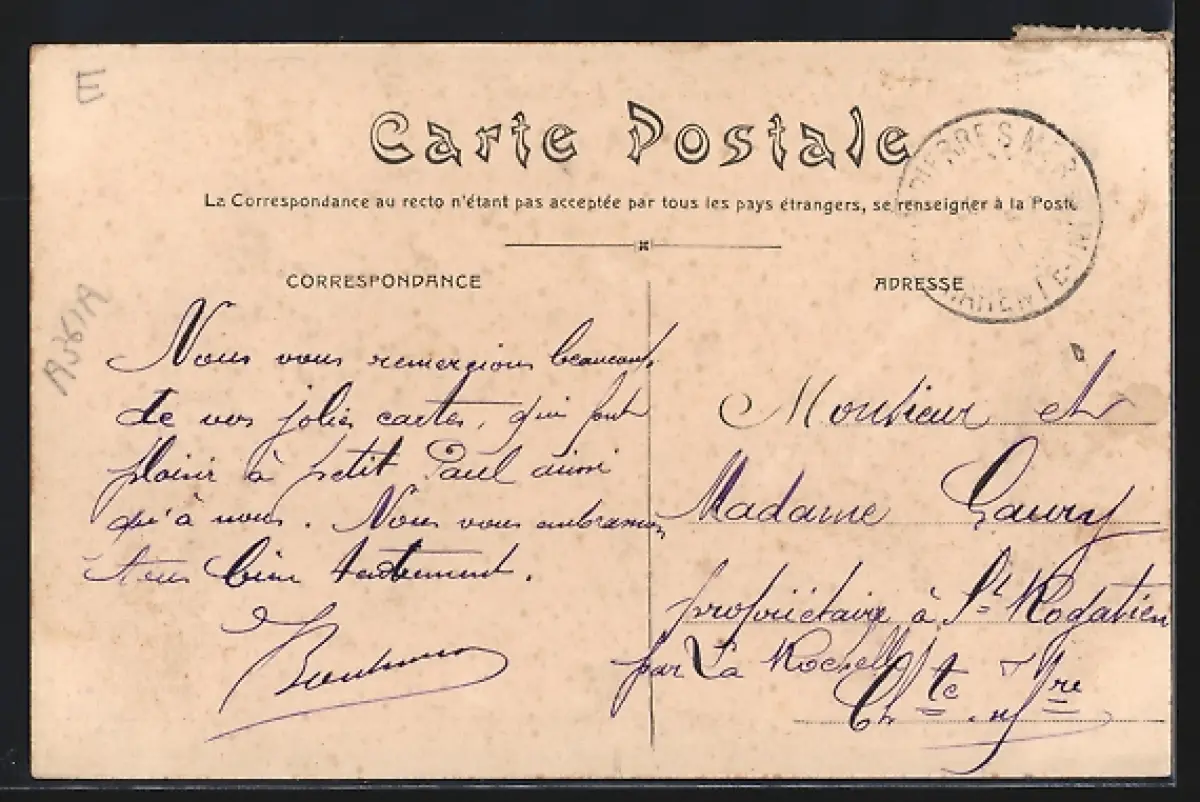 E
Carte Postale
La Correspondance au recto n'étant pas acceptée par tous les pays étrangers, se renseigner à la Poste
PIERRE S MER
CORRESPONDANCE
ADRESSE
A361A
Nous vous remercions beaucoup
de vos jolies cartes, qui font
plaisir à petit Paul ainsi
qu'à nous. Nous vous embrassons
tous bien tendrement.
Monsieur et
Madame Gaury
propriétaire à St Rogatien
par La Rochelle
Chte Infre